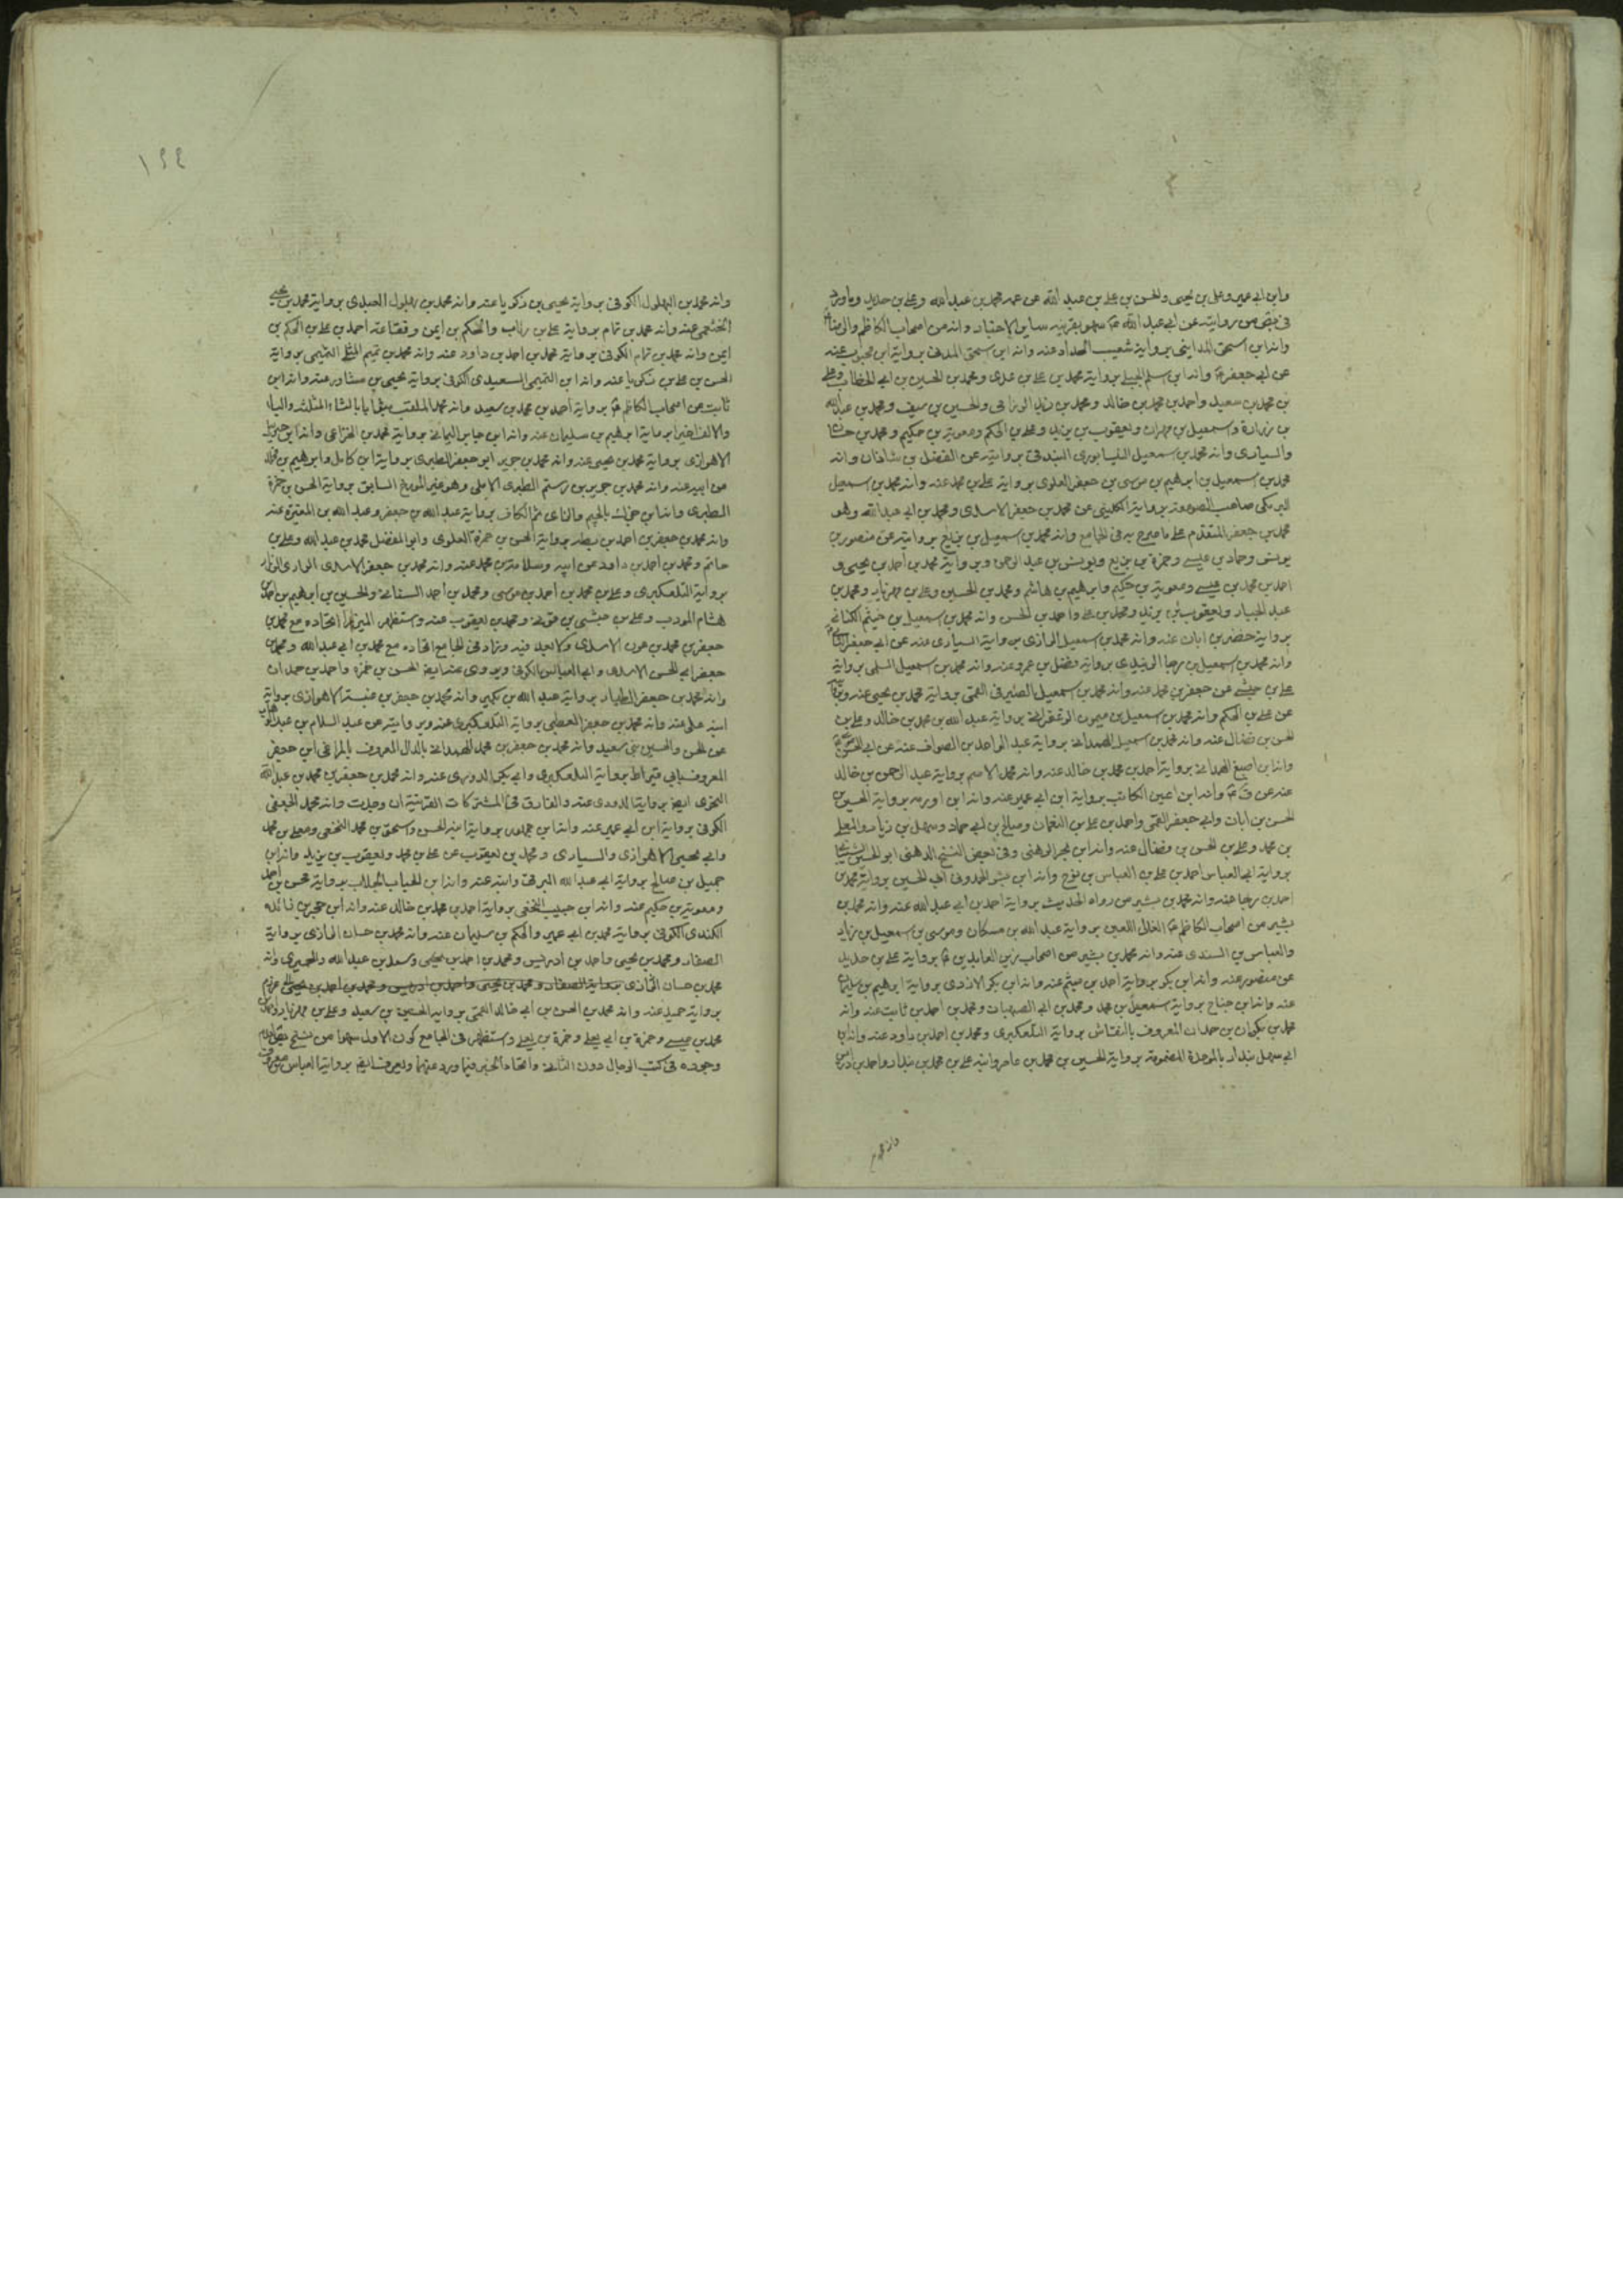 وابن ابي عمير وعلي بن يحيى والحسن بن علي بن عبد الله عن عمه محمد بن عبد الله وعلي بن حديد وما ورد
في بعض من روايته عن ابي عبد الله ع سهو بقرينة ساير الاخبار وانه من اصحاب الكاظم والرضا
وانه ابن اسحق المدايني برواية شعيب الحداد عنه وانه ابن اسحق المدني برواية ابن محبوب عنه
عن ابي جعفر ع وانه ابن اسلم الجبلي برواية محمد بن علي بن عدي ومحمد بن الحسين بن ابي الخطاب وعلي
بن محمد بن سعيد واحمد بن محمد بن خالد ومحمد بن زيد الرزامي والحسين بن سيف ومحمد بن عبد الله
بن زرارة واسمعيل بن مهران ويعقوب بن يزيد وعلي بن الحكم ومعوية بن حكيم ومحمد بن حسان
والسياري وانه محمد بن اسمعيل النيسابوري البندقي بروايته عن الفضل بن شاذان وانه
محمد بن اسمعيل بن ابرهيم بن موسى بن جعفر العلوي برواية علي بن محمد عنه وانه محمد بن اسمعيل
البرمكي صاحب الصومعة برواية الكليني عن محمد بن جعفر الاسدي ومحمد بن ابي عبد الله وهو
محمد بن جعفر المتقدم على ما صرح به في الجامع وانه محمد بن اسمعيل بن بزيع بروايته عن منصور بن
يونس وحماد بن عيسى وحمزة بن بزيع ويونس بن عبد الرحمن وبرواية محمد بن احمد بن يحيى و
احمد بن محمد بن عيسى ومعوية بن حكيم وابرهيم بن هاشم ومحمد بن الحسين وعلي بن مهزيار ومحمد بن
عبد الجبار ويعقوب بن يزيد ومحمد بن علي واحمد بن الحسن وانه محمد بن اسمعيل بن خيثم الكناني
برواية خضر بن ابان عنه وانه محمد بن اسمعيل الرازي برواية السياري عنه عن ابي جعفر
وانه محمد بن اسمعيل بن رجا الزبيدي برواية فضل بن عمرو عنه وانه محمد بن اسمعيل السلمي برواية
علي بن حبشي عن جعفر بن محمد عنه وانه محمد بن اسمعيل الصيرفي القمي برواية محمد بن يحيى عنه
عن علي بن الحكم وانه محمد بن اسمعيل بن ميمون الزعفراني برواية عبد الله بن محمد بن خالد وعلي بن
الحسن بن فضال عنه وانه محمد بن اسمعيل الهمداني برواية عبد الواحد بن الصواف عنه عن ابي الحسن
وانه ابن اصبغ الهمداني برواية احمد بن محمد بن خالد عنه وانه محمد الاصم برواية عبد الرحمن بن خالد
عنه عن ق ع وانه ابن اعين الكاتب برواية ابن ابي عمير عنه وانه ابن اورمه برواية الحسين بن
الحسن بن ابان وابي جعفر القمي واحمد بن علي بن النعمان وصالح بن ابي حماد وسهل بن زياد والمعلى
بن محمد وعلي بن الحسن بن فضال عنه وانه ابن بحر الرهني وفي بعض النسخ الدهني ابو الحسين
برواية ابي العباس احمد بن علي بن العباس بن نوح وانه ابن بشر الحمدوني ابي الحسين برواية محمد بن
احمد بن رجا عنه وانه محمد بن بشير من رواة الحديث برواية احمد بن ابي عبد الله عنه وانه محمد بن
بشير من اصحاب الكاظم ع الغال اللعين برواية عبد الله بن مسكان وموسى بن اسمعيل بن زياد
والعباس بن السندي عنه وانه محمد بن بشير من اصحاب زين العابدين ع برواية علي بن حديد
عن منصور عنه وانه ابن بكر برواية احمد بن ميثم عنه وانه ابن بكر الازدي برواية ابرهيم بن سليمان
عنه وانه ابن جناح برواية اسمعيل بن محمد ومحمد بن ابي الصهبان ومحمد بن احمد بن ثابت عنه وانه
محمد بن بكران بن حمدان المعروف بالنقاش برواية التلعكبري ومحمد بن احمد بن داود عنه وانه ابن
ابي سهل بندار بالموحدة المضمومة برواية الحسين بن محمد بن عامر وابنه علي بن محمد بن بندار واحمد بن ادريس
١٤٤
وانه محمد بن البهلول الكوفي برواية يحيى بن زكريا عنه وانه محمد بن بهلول العبدي برواية محمد بن يحيى
الخثعمي عنه وانه محمد بن تمام برواية علي بن رئاب والحكم بن ايمن وقضاعة احمد بن علي بن الحكم بن
ايمن وانه محمد بن تمام الكوفي برواية محمد بن احمد بن داود عنه وانه محمد بن تميم النهشلي التميمي برواية
الحسن بن علي بن زكريا عنه وانه ابن التميمي السعيدي الكوفي برواية يحيى بن مساور عنه وانه ابن
ثابت من اصحاب الكاظم ع برواية احمد بن محمد بن سعيد وانه محمد الملقب بثوابا بالثاء المثلثة والباء
والالف اخيرا برواية ابرهيم بن سليمان عنه وانه ابن جابر اليماني برواية محمد بن الخزاعي وانه ابن
الاهوازي برواية محمد بن عيسى عنه وانه محمد بن جرير ابو جعفر الطبري برواية ابن كامل وابرهيم بن مخلد
عن ابيه عنه وانه محمد بن جرير بن رستم الطبري الاملي وهو غير المورخ السابق برواية الحسن بن حمزة
الطبري وانه ابن جزك بالجيم والزاي ثم الكاف برواية عبد الله بن جعفر وعبد الله بن المغيرة عنه
وانه محمد بن جعفر بن احمد بن بطة برواية الحسن بن حمزة العلوي وابو المفضل محمد بن عبد الله وعلي بن
حاتم ومحمد بن احمد بن داود عن ابيه وسلامة بن محمد عنه وانه محمد بن جعفر الاسدي الرازي الرزاز
برواية التلعكبري وعلي بن محمد بن احمد بن موسى ومحمد بن احمد السناني والحسين بن ابرهيم بن احمد بن
هشام المودب وعلي بن حبشي بن قوني ومحمد بن يعقوب عنه واستظهر الميرزا اتحاده مع محمد بن
جعفر بن محمد بن عون الاسدي ولا بعد فيه وزاد في الجامع اتحاده مع محمد بن ابي عبد الله ومحمد بن
جعفر ابي الحسن الاسدي وابي العباس الكوفي ويروي عنه ايضا الحسن بن حمزه واحمد بن حمدان
وانه محمد بن جعفر الطيار برواية عبد الله بن بكير وانه محمد بن جعفر بن عنبسة الاهوازي برواية
ابنه علي عنه وانه محمد بن جعفر العطبي برواية التلعكبري عنه وبروايته عن عبد السلام بن عبد الوهاب
عن الحسن والحسين بني سعيد وانه محمد بن جعفر بن محمد الهمداني بالدال المعروف بالمراغي ابي جعفر
المعروف بابي قيراط برواية التلعكبري وابي بكر الدوري عنه وانه محمد بن جعفر بن محمد بن عبد الله
النحوي ايضا برواية الدوري عنه والفارق في المشتركات القرينة ان وجدت وانه محمد الجعفي
الكوفي برواية ابن ابي عمير عنه وانه ابن جمهور برواية ابنه الحسن واسحق بن محمد النخعي ومعلى بن محمد
وابي يحيى الاهوازي والسياري ومحمد بن يعقوب عن علي بن محمد ويعقوب بن يزيد وانه ابن
جميل بن صالح برواية ابي عبد الله البرقي وابنه عنه وانه ابن الحباب الجلاب برواية محسن بن احمد
ومعوية بن حكيم عنه وانه ابن حبيب النخعي برواية احمد بن محمد بن خالد عنه وانه ابن حجر بن زائدة
الكندي الكوفي برواية محمد بن ابي عمير والحكم بن سليمان عنه وانه محمد بن حسان الرازي برواية
الصفار ومحمد بن يحيى واحمد بن ادريس ومحمد بن احمد بن يحيى وسعد بن عبد الله والحميري وانه
محمد بن حسان الرازي برواية الصفار ومحمد بن يحيى واحمد بن ادريس ومحمد بن احمد بن يحيى عرزم
برواية حميد عنه وانه محمد بن الحسن بن ابي خالد القمي برواية الحسين بن سعيد وعلي بن مهزيار واحمد بن
محمد بن عيسى وحمزة بن ابي يعلى وحمزة بن يعلى واستظهر في الجامع كون الاول سهوا من نسخ
وجوده في كتب الرجال دون الثاني واتحاد الخبر فيما ورد عنهما ويعرف ايضا برواية العباس بن معروف